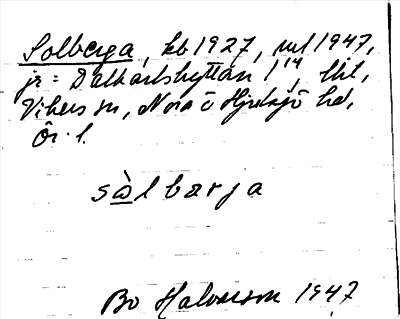 Solberga, kb 1927, uul 1947,
jr = Dalkarlshyttan 1¹⁴, lht,
Vikers sn, Nora o Hjulsjö hd,
Ör. l.
sὰlbærja
Bo Halvarson 1947